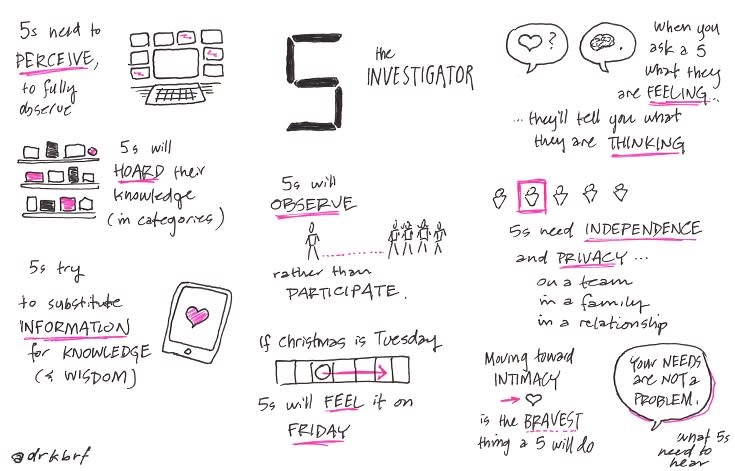 5s need to
PERCEIVE,
to fully
observe
5s will
HOARD their
knowledge
(in categories)
5s try
to substitute
INFORMATION
for KNOWLEDGE
(& WISDOM)
@drkbrf
5
the
INVESTIGATOR
5s will
OBSERVE
rather than
PARTICIPATE.
If Christmas is Tuesday
5s will FEEL it on
FRIDAY
?
.
When you
ask a 5
what they
are FEELING...
...they'll tell you what
they are THINKING
5s need INDEPENDENCE
and PRIVACY...
on a team
in a family
in a relationship
Moving toward
INTIMACY
is the BRAVEST
thing a 5 will do
YOUR NEEDS
are NOT a
PROBLEM.
what 5s
need to
hear